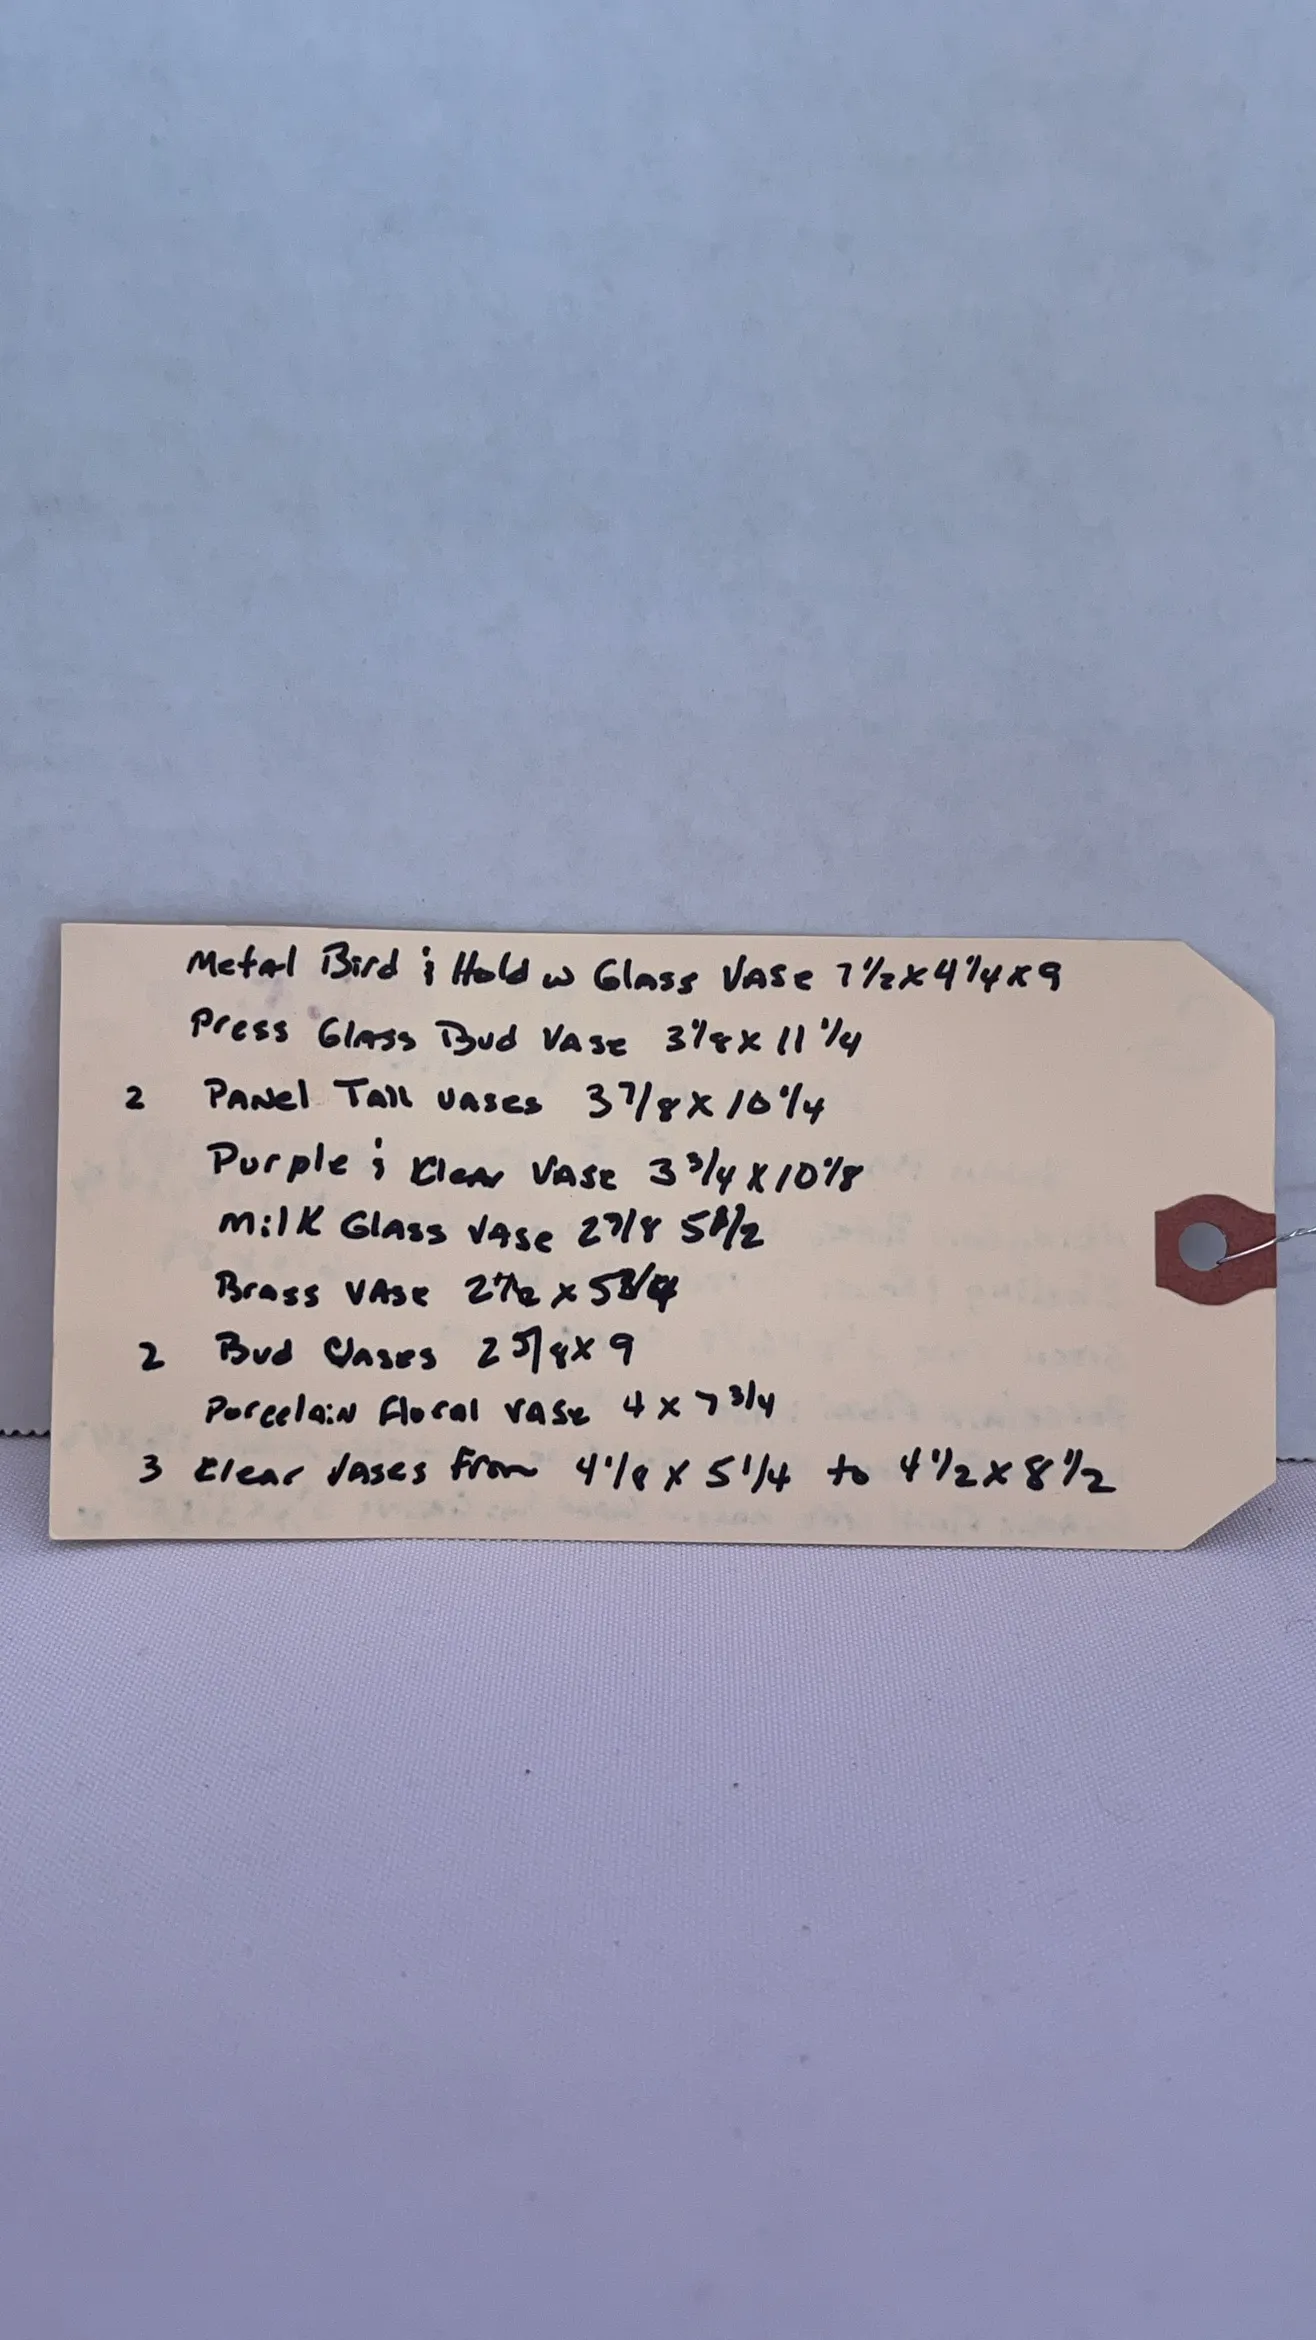 Metal Bird & Hold w Glass Vase 7 1/2 x 4 1/4 x 9
Press Glass Bud Vase 3 1/8 x 11 1/4
2 Panel Tall Vases 3 7/8 x 10 1/4
Purple & Clear Vase 3 3/4 x 10 1/8
Milk Glass Vase 2 7/8 5 1/2
Brass Vase 2 1/2 x 5 3/4
2 Bud Vases 2 5/8 x 9
Porcelain Floral Vase 4 x 7 3/4
3 Clear Vases From 4 1/8 x 5 1/4 to 4 1/2 x 8 1/2